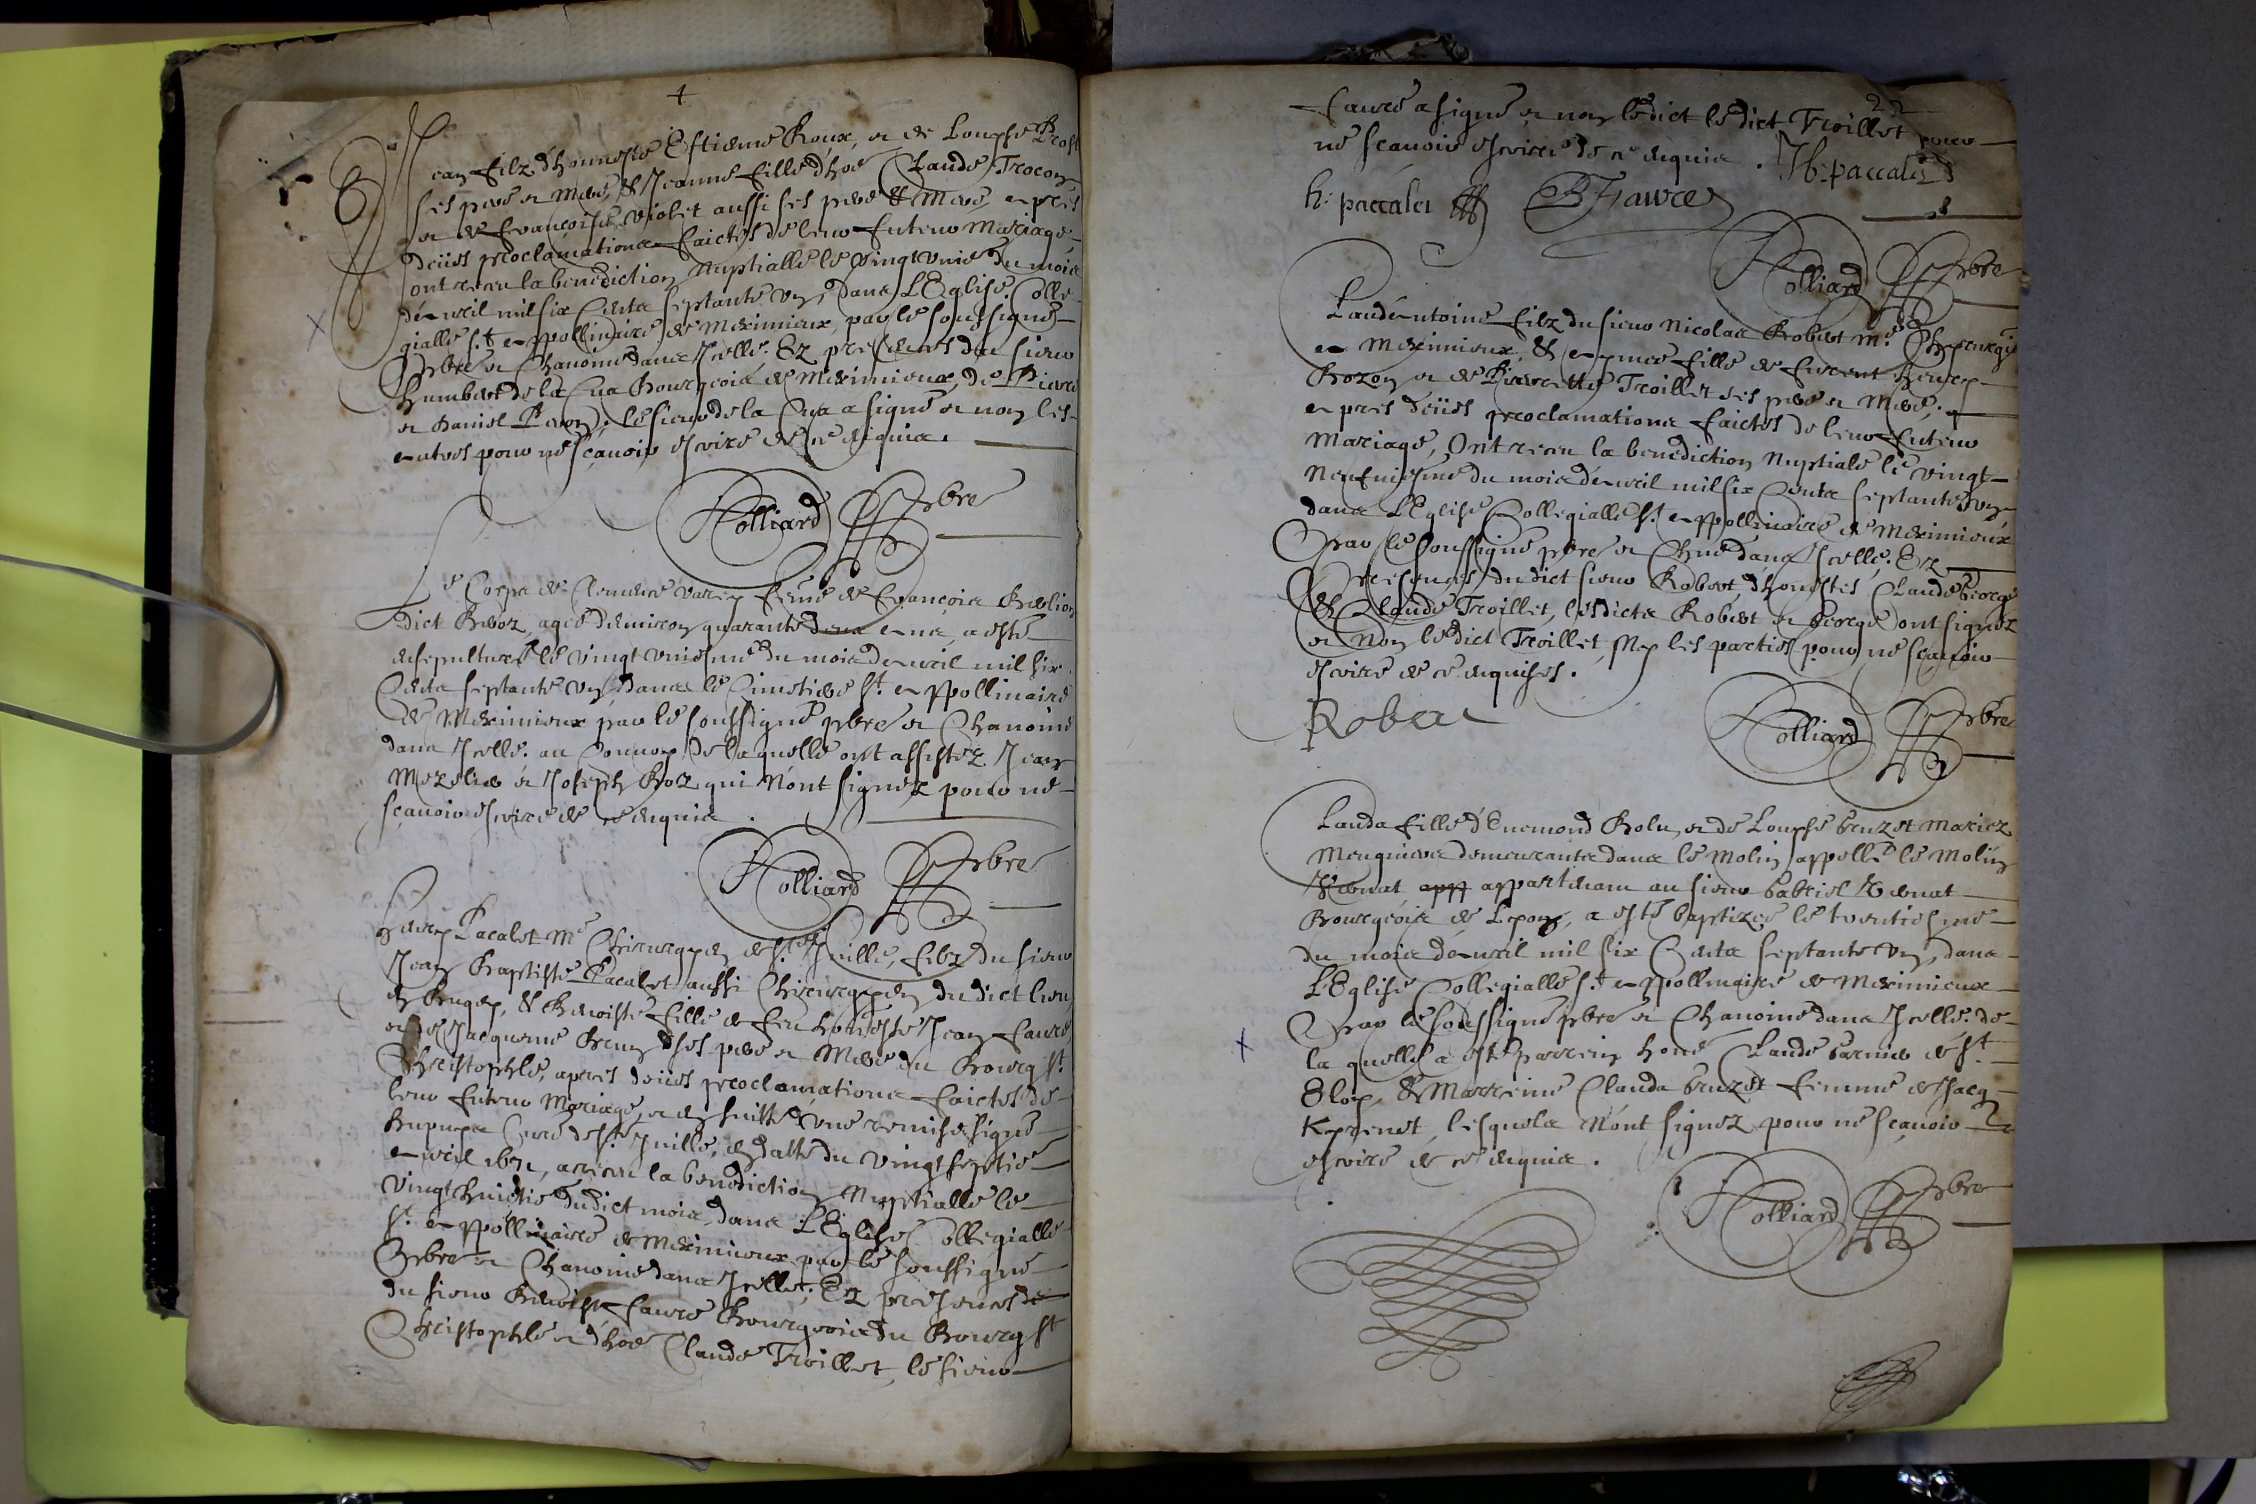 Jean filz d'honneste Estienne Roux, et de Louyse Brost
ses pere et Mere, & Jeanne fille d'hoe Claude Trocon
et de Françoise Violet aussi ses pere & Mere, apres
deües proclamations faictes de leur futeur Mariage,
ont receu la benediction Nuptialle le vingt unie du mois
d'Avril mil six Cents septante un, dans L'Eglise Colle-
gialle St Appollinaire de Meximieux, par le soussigné
Prbre et Chanoine dans Icelle. Ez presences du sieur
Humbert de la Cua Bourgeois de Meximieux, de Pierre
et Daniel Peron, le sieur de la Cua a signé et non les
autres pour ne sçavoir escrire de ce enquis.
Holliard Prbre
Le Corps de Clemence Varrey feme de François Berlion
dict Revoz, agée d'environ quarante deux ans, a esté
ensepulturé le vingt uniesme du mois d'Avril mil six
Cents septante un, dans le Cimetiere St Appollinaire
de Meximieux par le soussigné prbre et Chanoine
dans Icelle. au Convoy de laquelle ont assistez Jean
Mezelier et Joseph Roz qui n'ont signez pour ne
sçavoir escrire de ce enquis.
Holliard Prbre
Henry Pacalet Me Chirurgyen de Ste Jullie, filz du sieur
Jean Baptiste Pacalet aussi Chirurgyen du dict lieu
en Bugey, & Benoiste fille de feu honneste Jean Faure,
et de Jacqueme Brun ses pere et Mere du Bourg St
Christophle, apres deües proclamations faictes de
leur futeur Mariage, et en suitte d'une remise signé
Dupuys Curé de Ste Jullie, en datte du vingt septie
Avril 1671, a receu la benediction Nuptialle le
vingt huictie dudict mois, dans L'Eglise Collegialle
St Appollinaire de Meximieux par le soussigné
Prbre et Chanoine dans Icelle; Ez presences de
du sieur Benoist Faure Bourgeois du Bourg St
Christophle et d'hoe Claude Troillet, le sieur
22
Faure a signé et non le dict le dict Troillet pour
ne sçavoir escrire de ce enquis. JB. paccalet
h. paccalet B Faure
Holliard Prbre
Claude Antoine filz du sieur Nicolas Robert Me Chyrurgie
a Meximieux, & Aymée fille de Laurent Henry
Rozon et de Pierrette Troillet ses pere et Mere,
apres deües proclamations faictes de leur futeur
Mariage, Ont receu la benediction Nuptiale le vingt
neufviesme du mois d'Avril mil six Cents septante un
dans L'Eglise Collegialle St Appollinaire de Meximieux
Par le soussigné prbre et Chne dans Icelle. Ez
Presences dudict sieur Robert, d'honestes Claude George
& Claude Troillet, lesdicts Robert et George ont signez
et Non le dict Troillet Ny les parties pour ne sçavoir
escrire de ce enquises.
Robert
Holliard Prbre
Clauda fille d'Enemond Rolu, et de Louyse Cruzet Mariez
Meuniers demeurants dans le Molin appellé le Molin
Thevenat app appartenant au sieur Gabriel Thevenat
Bourgeois de Lyon, a esté baptizée le trentiesme
du mois d'Avril mil six Cents septante un, dans
L'Eglise Collegialle St Appollinaire de Meximieux
Par le soussigné prbre et Chanoine dans Icelle. de
la quelle a esté parrein hone Claude Garnier de St
Eloy, & Marreine Clauda Cruzet femme de Jacq
Kprenet, lesquels n'ont signez pour ne sçavoir
escrire de ce enquis.
Holliard Prbre